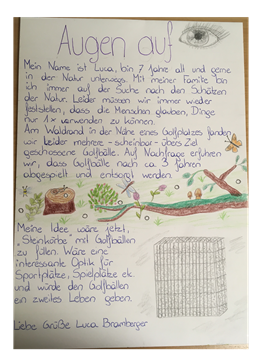 Augen auf
Mein Name ist Luca, bin 7 Jahre alt und gerne
in der Natur unterwegs. Mit meiner Familie bin
ich immer auf der Suche nach den Schätzen
der Natur. Leider müssen wir immer wieder
feststellen, dass die Menschen glauben, Dinge
nur 1x verwenden zu können.
Am Waldrand in der Nähe eines Golfplatzes fanden
wir leider mehrere - scheinbar - übers Ziel
geschossene Golfbälle. Auf Nachfrage erfuhren
wir, dass Golfbälle nach ca. 3 Jahren
abgespielt und entsorgt werden.
Meine Idee wäre jetzt,
"Steinkörbe" mit Golfbällen
zu füllen. Wäre eine
interessante Optik für
Sportplätze, Spielplätze etc.
und würde den Golfbällen
ein zweites Leben geben.
Liebe Grüße Luca Bramberger